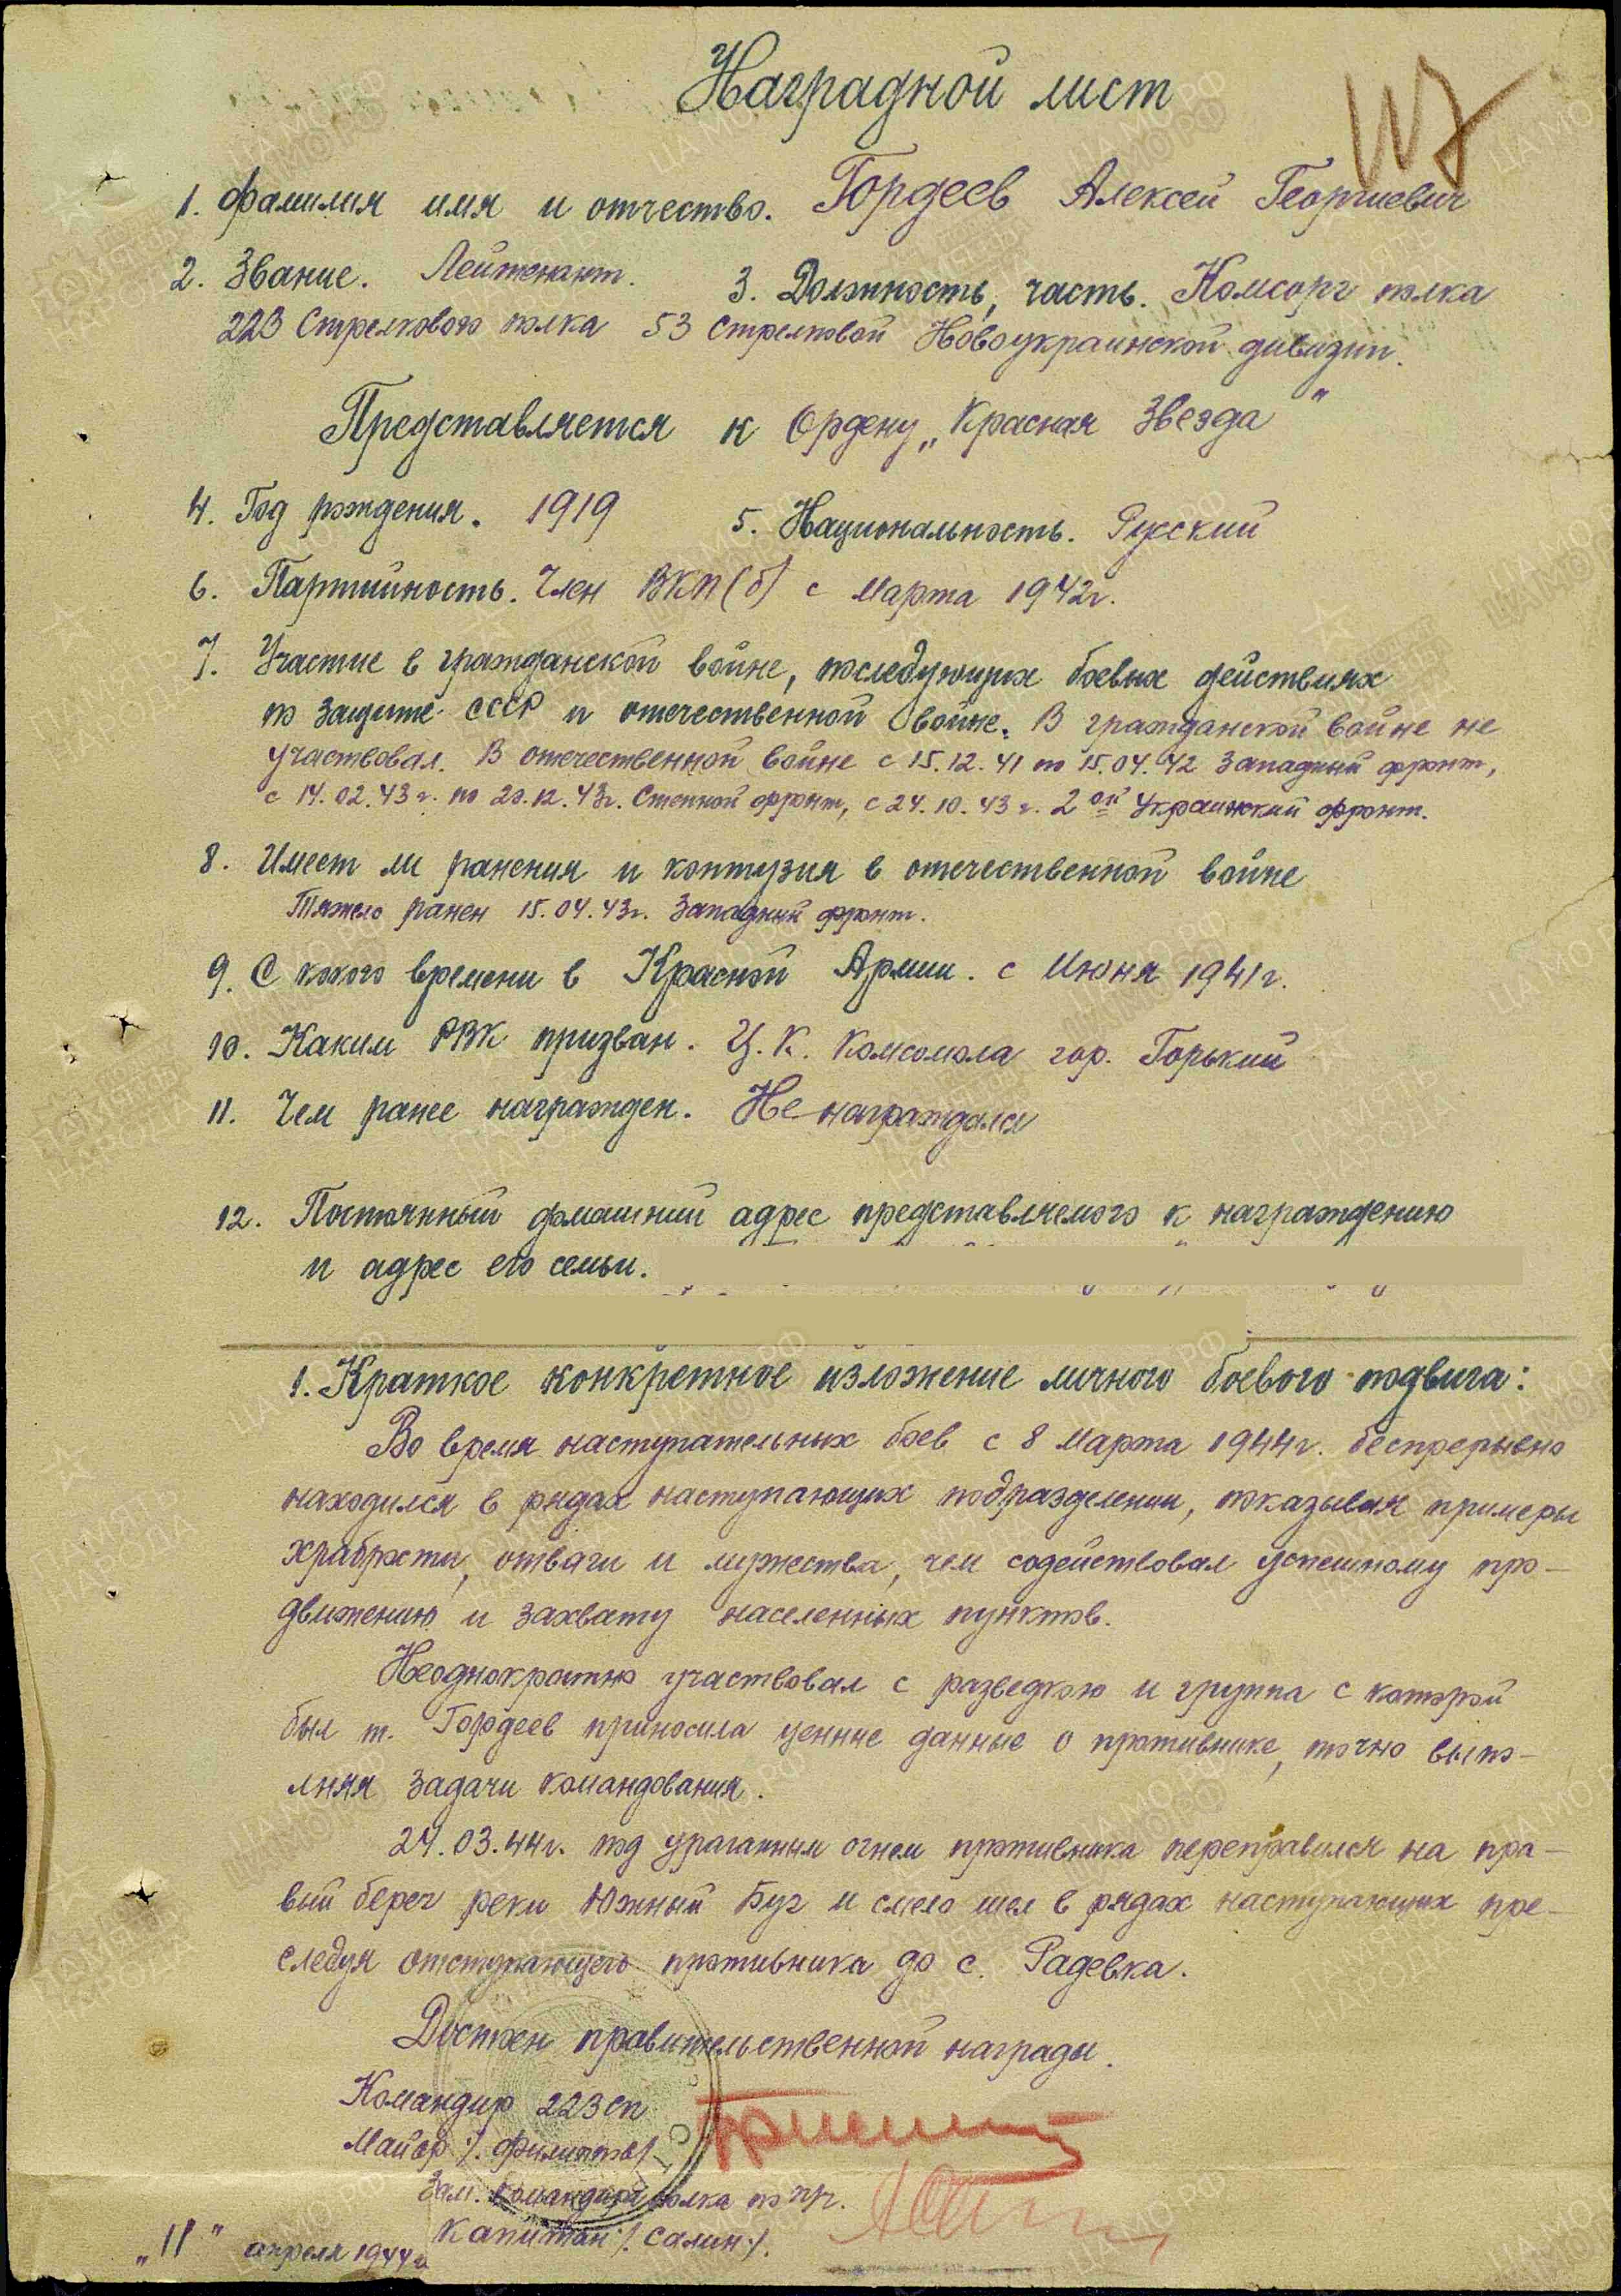 Наградной лист
1. Фамилия имя и отчество. Гордеев Алексей Георгиевич
2. Звание. Лейтенант. 3. Должность, часть. Комсорг полка
223 Стрелкового полка 53 Стрелковой Новоукраинской дивизии.
Представляется к Ордену „Красная Звезда"
4. Год рождения. 1919 5. Национальность. Русский
6. Партийность. Член ВКП(б) с Марта 1942г.
7. Участие в гражданской войне, последующих боевых действиях
по защите СССР и отечественной войне. В гражданской войне не
участвовал. В отечественной войне с 15.12.41 по 15.04.42 Западный фронт,
с 14.02.43г. по 20.12.43г. Степной фронт, с 24.10.43г. 2ой Украинский фронт.
8. Имеет ли ранения и контузия в отечественной войне
Тяжело ранен 15.04.43г. Западный фронт.
9. С какого времени в Красной Армии. с Июня 1941г.
10. Каким РВК призван. Ц.К. Комсомола гор. Горький
11. Чем ранее награжден. Не награждался
12. Постоянный домашний адрес представляемого к награждению
и адрес его семьи.
1. Краткое конкретное изложение личного боевого подвига:
Во время наступательных боев с 8 Марта 1944г. беспрерывно
находился в рядах наступающих подразделений, показывая примеры
храбрости, отваги и мужества, чем содействовал успешному про-
движению и захвату населенных пунктов.
Неоднократно участвовал с разведкою и группа с которой
был т. Гордеев приносила ценные данные о противнике, точно выпо-
лняя задачи командования.
24.03.44г. под ураганным огнем противника переправился на пра-
вый берег реки Южный Буг и смело шел в рядах наступающих пре-
следуя отступающего противника до с. Радевка.
Достоен правительственной награды.
Командир 223 сп
Майор /. Филиппов/
Зам. командира полка по пр.
Капитан /. Салин./.
„11" апреля 1944г